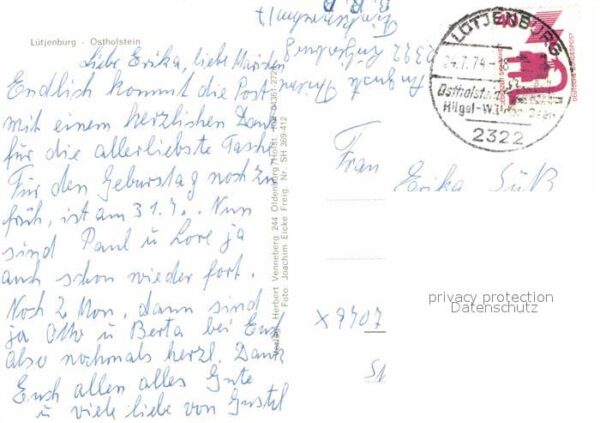 Lütjenburg - Ostholstein
Liebe Erika, liebe
Endlich kommt die Post
mit einem herzlichen Dank
für die allerliebste Tasche
Für den Geburtstag noch zu
früh, ist am 31.7.. Nun
sind Paul u Lore ja
auch schon wieder fort.
Noch 2 Mon, dann sind
ja Otto u Berta bei Euch
also nochmals herzl. Dank
Euch allen alles Gute
u viele liebe von Gustel
Verlag Herbert Venneberg 244 Oldenburg/Holst. Ruf 04361-2725
Foto Joachim Eicke Freig. Nr. SH 369-412
2322 Lütjenburg
LÜTJENBURG
24.7.74-18
Ostholstein
Hügel-W
2322
40
DEUTSCHE BUNDESPOST
Frau
Erika Süß
X9407
privacy protection
Datenschutz